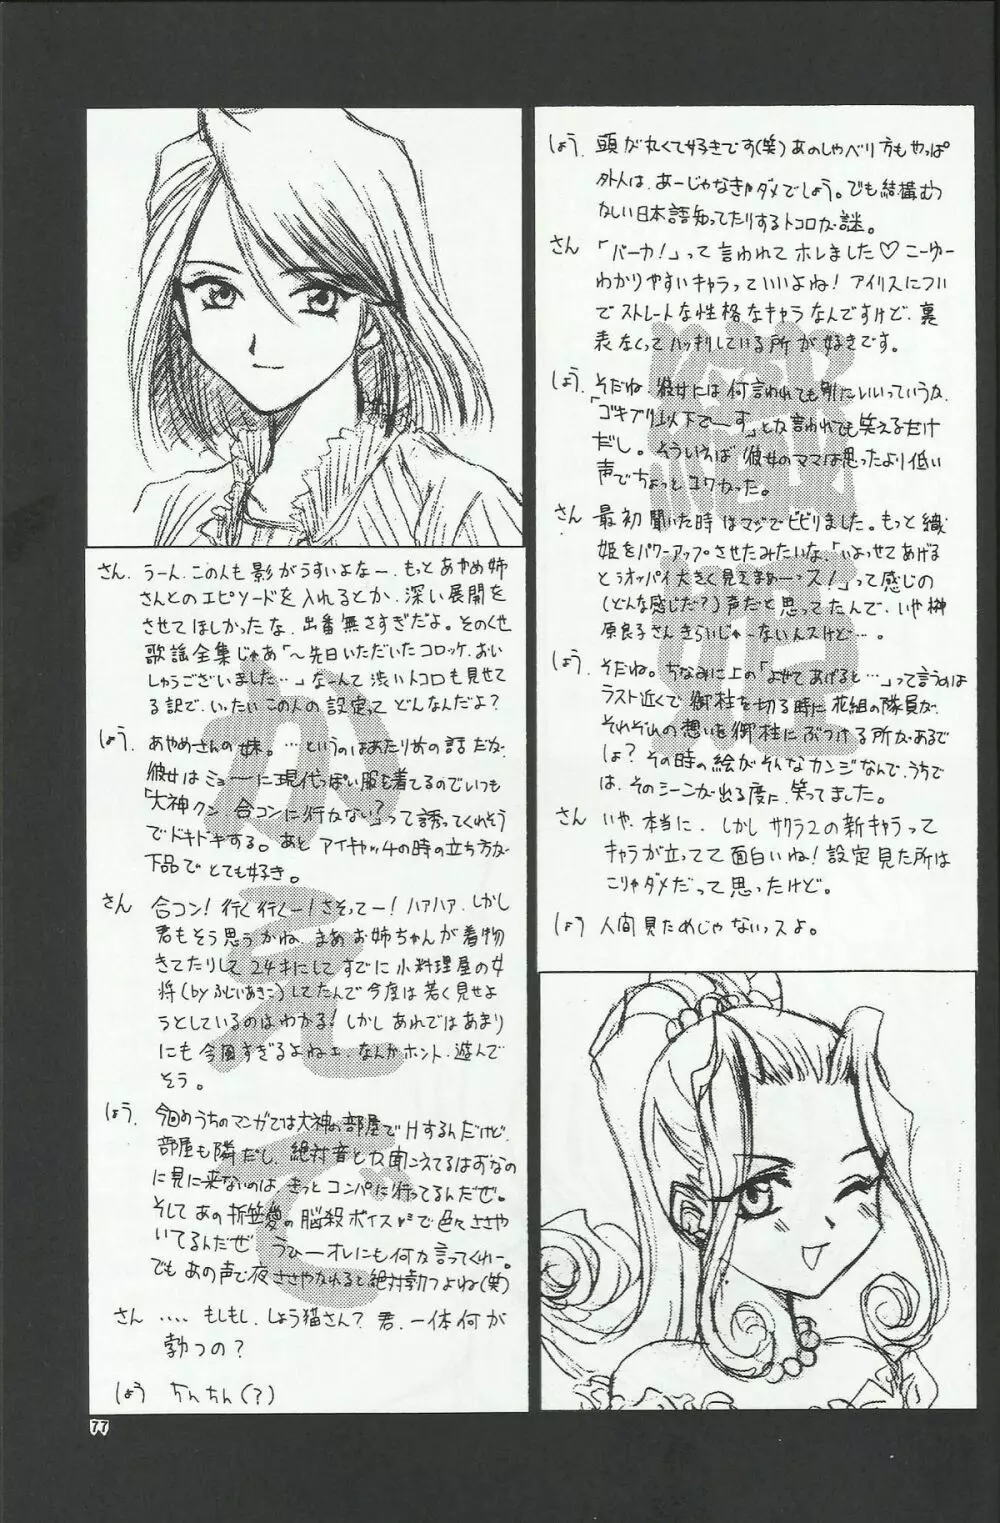 しょう. 頭が丸くて好きです(笑)あのしゃべり方もやっぱ
外人は、あーじゃなきゃダメでしょう。でも結構むつ
かしい日本語知ってたりするトコロが謎。
さん 「バーカ!」って言われてホレました♡こーゆー
わかりやすいキャラっていいよね!アイリスについ
でストレートな性格なキャラなんですけど、裏
表なくってハッキリしている所が好きです。
しょう. そだね、彼女には何言われても別にいいっていうか、
「ゴキブリ以下でーす」とか言われても笑えるだけ
だし。そういえば、彼女のママは思ったより低い
声でちょっとコワかった。
さん 最初聞いた時はマジでビビりました。もっと織
姫をパワーアップさせたみたいな、「いよせてあげる
とうオッパイ大きく見えまぁーっス!」って感じの
(どんな感じだ?)声だと思ってたんで、いや榊
原良子さんきらいじゃーないんスけど…。
しょう. そだね。ちなみに上の「よせてあげると…」って言うのは
ラスト近くで御柱を切る時に花組の隊員が、
それぞれの想いを御柱にぶつける所があるで
しょ?その時の絵がそんなカンジなんで、うちで
は、そのシーンが出る度に、笑ってました。
さん いや、本当に、しかしサクラ2の新キャラって
キャラが立ってて面白いね!設定見た所は
こりゃダメだって思ったけど。
しょう 人間見ためじゃないっスよ。
さん. うーん、この人も影がうすいよなー、もっとあやめ姉
さんとのエピソードを入れるとか、深い展開を
させてほしかったな、出番無さすぎだよ。そのくせ
歌謡全集じゃあ「〜先日いただいたコロッケ、おい
しゅうございました…」なーんて渋いトコロも見せて
る訳で、いったいこの人の設定ってどんなんだよ?
しょう. あやめさんの妹。…というのはあたりめの話だが、
彼女はミョーに現代っぽい服も着てるのでいつも
「大神クン、合コンに行かない?」って誘ってくれそう
でドキドキする。あと、アイキャッチの時の立ち方が
下品でとても好き。
さん 合コン!行く行くー!さそってー!ハァハァ、しかし
君もそう思うかね、まあお姉ちゃんが着物
きてたりして24才にしてすでに小料理屋の女
将(byふじいあきこ)してたんで今度は若く見せよ
うとしているのはわかる!しかしあれではあまり
にも今風すぎるよねェ、なんかホント、遊んで
そう。
しょう. 今回のうちのマンガでは大神の部屋でHするんだけど、
部屋も隣だし、絶対音とか聞こえてるはずなの
に見に来ないのは、きっとコンパに行ってるんだぜ。
そしてあの折笠愛の脳殺ボイスで色々ささや
いてるんだぜ うひーオレにも何か言ってくれー。
でもあの声で夜ささやかれると絶対勃つよね(笑)
さん ‥‥もしもし、しょう猫さん?君、一体何が
勃つの?
しょう ちんちん(?)
かえで
77